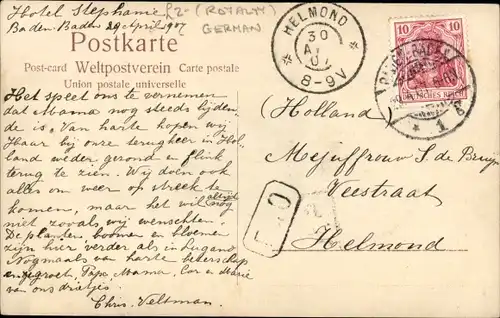 Hotel Stephanie £2- (ROYALTY)
Baden-Baden 29 April 1907 GERMAN
Postkarte
Post-card Weltpostverein Carte postale
Union postale universelle
HELMOND
30
8-9V
10 10
DEUTSCHES REICH
BADEN-BADEN
* 1
Het speet ons te vernemen
dat Mama nog steeds lijden-
de is. Van harte hopen wij
Haar bij onze terugkeer in Hol-
land weder gezond en flink
terug te zien. Wij doen ook
alles om weer op streek te
komen, maar het wil altijd nog
niet zooals wij wenschten.
De planten boomen en bloemen
zijn hier verder als in Lugano.
Nogmaals van harte beterschap
en gegroet, Papa, Mama, Cor en Marie
van ons drietjes.
Chris. Veltman.
(Holland)
Mejuffrouw S. de Bruyn
Veestraat
Helmond